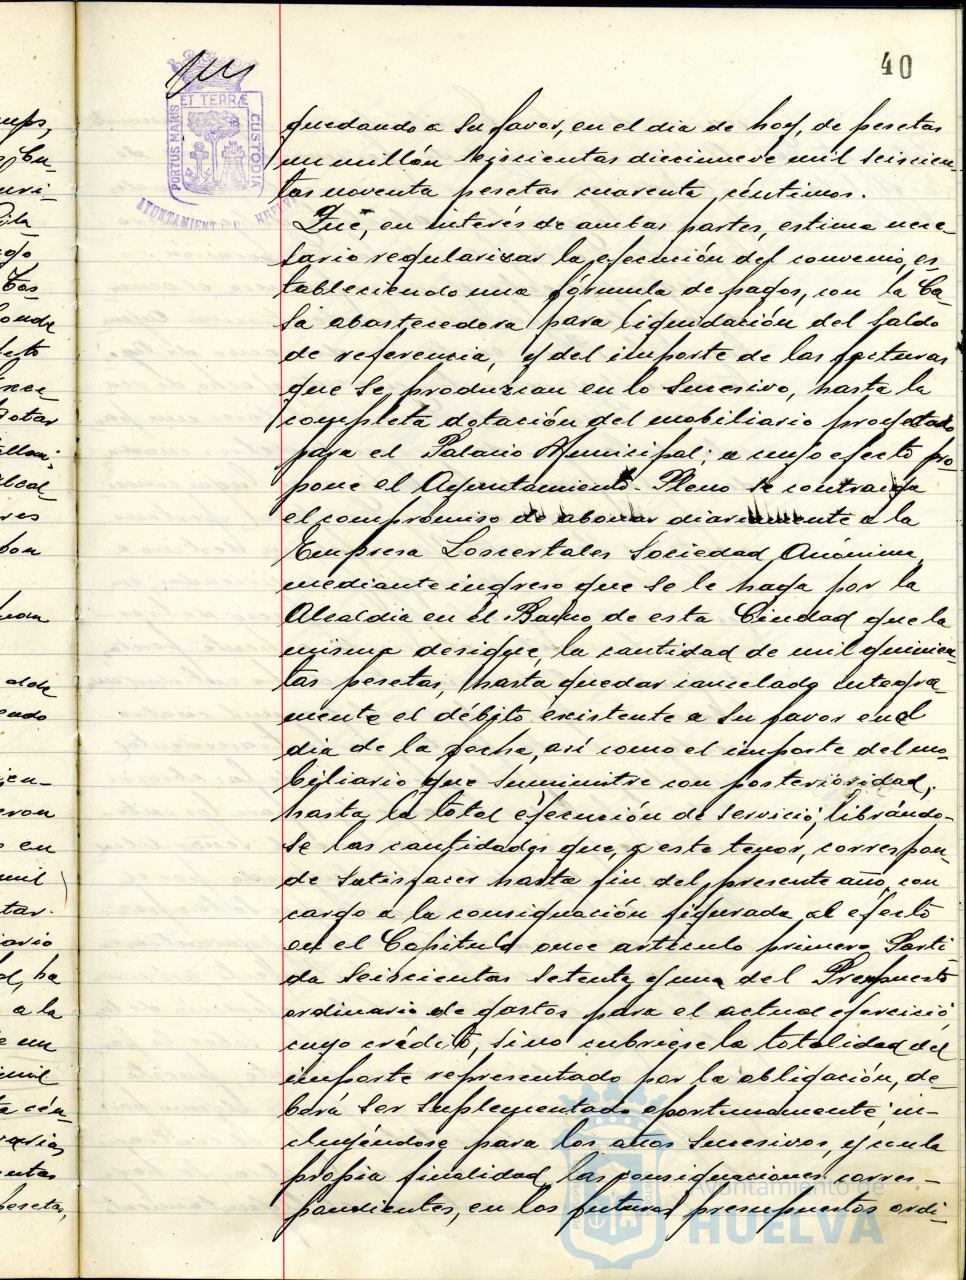 40
PORTUS MARIS ET TERRÆ CUSTODIA
AYUNTAMIENTO HUELVA
quedando a su favor, en el dia de hoy, de pesetas
un millón seiscientas diecinueve mil seiscien-
tas noventa pesetas cuarenta céntimos.
Que, en interés de ambas partes, estima nece-
sario regularizar la ejecución del convenio, es-
tableciendo una fórmula de pagos, con la Ca-
sa abastecedora para liquidación del saldo
de referencia, y del importe de las facturas
que se produzcan en lo sucesivo, hasta la
completa dotación del mobiliario proyectado
para el Palacio Municipal; a cuyo efecto pro-
pone el Ayuntamiento-Pleno se contraiga
el compromiso de abonar diariamente a la
Empresa Loscertales Sociedad Anónima,
mediante ingreso que se le haga por la
Alcaldia en el Banco de esta Ciudad que la
misma designe, la cantidad de mil quinien-
tas pesetas, hasta quedar cancelado integra-
mente el débito existente a su favor en el
dia de la fecha, así como el importe del mo-
biliario que suministre con posterioridad,
hasta la total ejecución de servicio; librándo-
se las cantidades que, a este tenor, correspon-
de satisfacer hasta fin del presente año, con
cargo a la consignación figurada al efecto
en el Capítulo once artículo primero Parti-
da seiscientas setenta y una del Presupuesto
ordinario de gastos para el actual ejercicio
cuyo crédito, si no cubriese la totalidad del
importe representado por la obligación, de-
berá ser suplementado oportunamente; in-
cluyéndose para los años sucesivos, y en la
propia finalidad, las consignaciones corres-
pondientes, en los futuros presupuestos ordi-
Ayuntamiento de
HUELVA